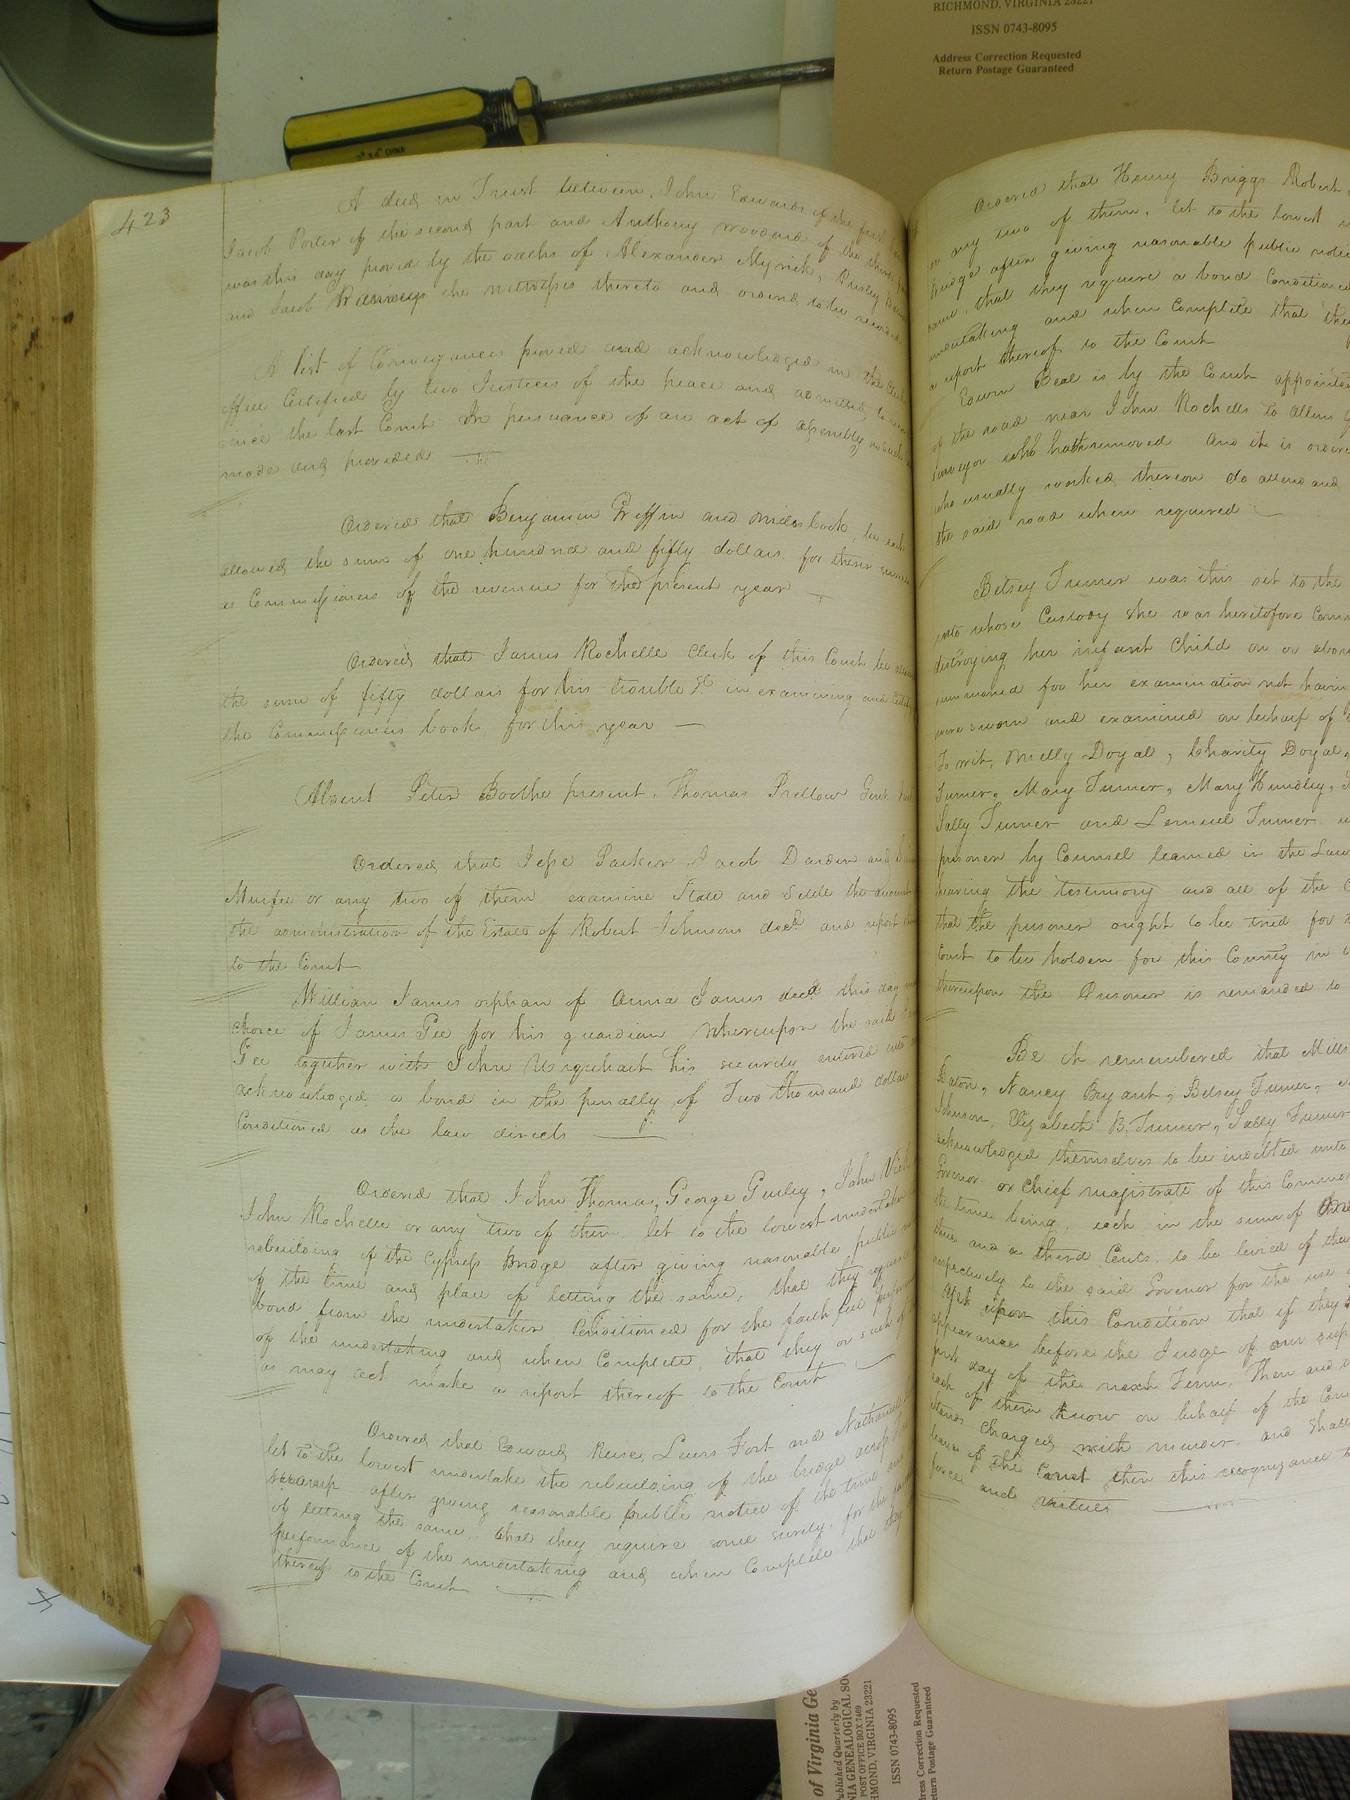 RICHMOND, VIRGINIA 23221
ISSN 0743-8095
Address Correction Requested
Return Postage Guaranteed
423
A deed in Trust between John Edwards of the first
Jacob Porter of the second part and Anthony Woodard of the third
was this day proved by the oaths of Alexander Myrick,
and Jacob the witnesses thereto and ordered to be recorded
A list of Conveyances proved and acknowledged in the Clerks
office Certified by two Justices of the peace and admitted to
since the last Court In persuance of an act of Assembly
made and provided
Ordered that Benjamin Griffin and be each
allowed the sum of one hundred and fifty dollars for their
as Commissioners of the revenue for the present year
Ordered that James Rochelle Clerk of this Court be
the sum of fifty dollars for his trouble &c in examining and
the Commissioners books for this year
Absent Peter Boothe present Thomas Pretlow Gent
Ordered that Jesse Parker Jacob Darden and
or any two of them examine State and Settle the
the administration of the Estate of Robert Johnson decd and report
to the Court
William James orphan of Anna James decd this day
choice of James Gee for his guardian Whereupon the said
Gee together with John Urquhart his security entered into
acknowledged a bond in the penalty of Two thousand dollars
Conditioned as the law directs
Ordered that John Thomas, George Gurley, John
John Rochelle or any two of them let to the lowest undertaker
rebuilding of the Cypress Bridge after giving reasonable public
of the time and place of letting the same, that they require
bond from the undertaker Conditioned for the faithful
of the undertaking and when Complete, that they or such of
as may act make a report thereof to the Court
Ordered that Edward Reese, Lewis Fort and Nathaniel
let to the lowest undertake the rebuilding of the bridge across
swamp after giving reasonable public notice of the time and
of letting the same that they require some surety for the
performance of the undertaking and when Complete that they
thereof to the Court
Ordered that Henry Briggs Robert
or any two of them, let to the lowest
bridge after giving reasonable public notice
same that they require a bond Conditioned
undertaking and when Complete that they
a report thereof to the Court
Edwin Beal is by the Court appointed
of the road near John Rochells to
surveyor who hath removed And it is ordered
who usually worked thereon do attend and
the said road when required
Betsey Turner was this set to the
into whose Custody she was heretofore
destroying her infant Child on or about
summoned for her examination not having
were sworn and examined on behalf of
To wit, Milly Doyal, Charity Doyal,
Turner, Mary Turner, Mary Hundley,
Sally Turner and Lemuel Turner
prisoner by Counsel learned in the Law
hearing the testimony and all of the
that the prisoner ought to be tried for
Court to be holden for this County in
thereupon the Prisoner is remanded to
Be it remembered that
Nancy Bryant, Betsey Turner,
Johnson, Elizabeth B. Turner, Sally Turner
acknowledged themselves to be indebted unto
Govenor or Chief magistrate of this
the time being, each in the sum of
and a third Cents, to be levied of
respectively to the said Govenor for the use
Yet upon this Condition that if they
appearance before the Judge of our
first day of the next Term, Then and
each of them know on behalf of the
stands charged with murder and shall
leave of the Court then this recognizance to
force and virtue
of Virginia Ge
Published Quarterly by
NIA GENEALOGICAL SO
POST OFFICE BOX 7469
HMOND, VIRGINIA 23221
ISSN 0743-8095
dress Correction Requested
eturn Postage Guaranteed